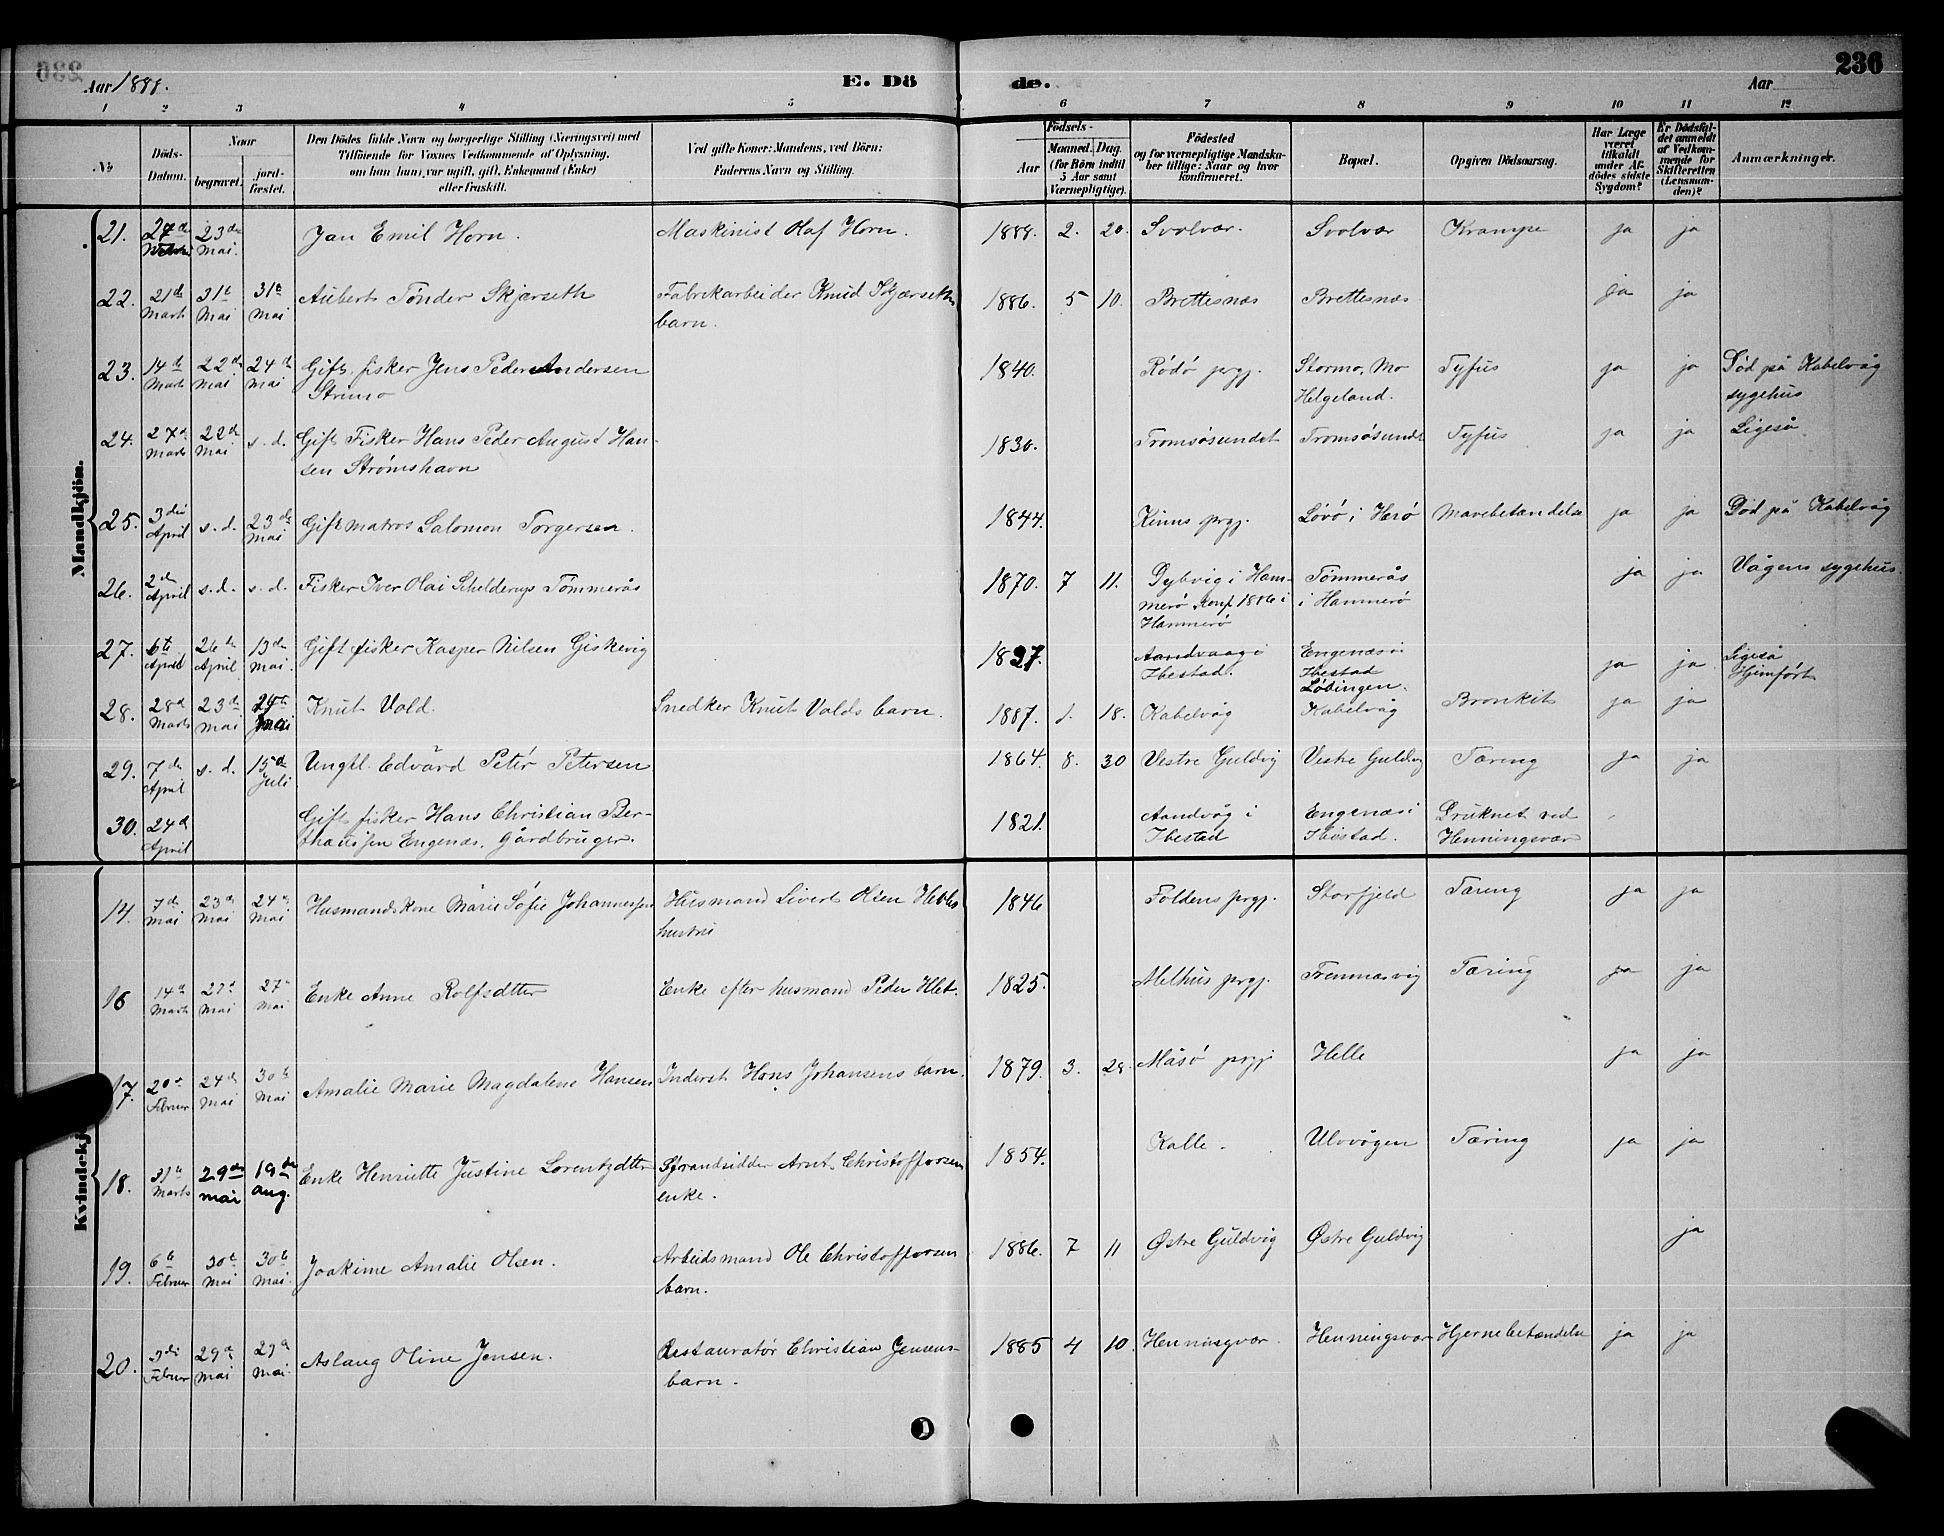 Aar 1888. E. Dö de. Aar 236
1 2 3 4 5 6 7 8 9 10 11 12
№ Döds-Datum. Naar begravet. jordfæstet. Den Dödes fulde Navn og borgerlige Stilling (Næringsvei) med Tilföiende for Voxnes Vedkommende af Oplysning, om han (hun) var ugift, gift, Enkemand (Enke) eller fraskilt. Ved gifte Koner: Mandens, ved Börn: Faderens Navn og Stilling. Födsels- Aar Maaned. Dag. (for Börn indtil 5 Aar samt Værnepligtige). Födested og for værnepligtige Mandskaber tillige: Naar og hvor konfirmeret. Bopæl. Opgiven Dödsaarsag. Har Læge været tilkaldt under Afdödes sidste Sygdom? Er Dödsfaldet anmeldt af Vedkommende for Skifteretten (Lensmanden)? Anmærkninger.
Mandkjön.
21. 27de 23de Mai. Jan Emil Horn. Maskinist Olaf Horn. 1888. 2. 20. Svolvær. Svolvær Krampe ja ja
22. 21de Marts 31te Mai 31te Mai Aubert Tönder Skjærseth Fabrikarbeider Knud Skjærseths barn. 1886. 5 10. Brettesnæs Brettesnæs ja ja
23. 14de Marts 22de Mai 24de Mai Gift. fisker Jens Peder Andersen Strimo 1840. Rödö prgj. Stormo, Mo Helgeland. Tyfus ja ja Död på Kabelvåg sygehus
24. 27de Marts 22de Mai s. d. Gift Fisker Hans Peder August Hansen Strömshavn 1830. Tromsösundet Tromsösundt Tyfus ja ja Ligeså
25. 3die April s. d. 23de Mai Gift matros Salomon Torgersen. 1844. Kinns prgj. Lövö i Herö Mavebetændelse ja ja Död på Kabelvåg
26. 2den April s. d. s. d. Fisker Iver Olai Schelderup Tömmerås 1870. 7 11. Dybvig i Hammerö Konf 1886 i Hammerö Tömmerås i Hammerö ja ja Vågens sygehus.
27. 6te April 26de April 13de Mai. Gift fisker Kasper Nilsen Giskevig 1827. Aandvaag i Ibestad. Engenæs i Ibestad Lödingen. ja ja Ligeså Hjemfört
28. 28de Marts 23de Mai 24de Mai Knut Vold. Snedker Knut Volds barn. 1887. 1. 18. Kabelvåg Kabelvåg Bronkit ja ja
29. 7de April s. d. 15de Juli Ungkl. Edvard Petér Petersen 1864. 8. 30 Vestre Guldvig Vestre Guldvig Tæring ja ja
30. 24de April Gift fisker Hans Christian Berthaussen Engenæs. Gårdbruger. 1821. Aandvåg i Ibestad Engenæs i Ibestad. Druknet ved Henningsvær
Kvindekj
14. 7de Mai 23de Mai 24de Mai Husmandskone Marie Sofie Johannessen Husmand Sivert Olsen hustru 1846 Foldens prgj. Storfjeld Tæring ja ja
16 14de Marts 27de Mai 27de Mai Enke Anne Rolfsdtter Enke efter husmand Peder 1825. Melhus prgj. Tæring ja ja
17. 20de Februar 24de Mai 30te Mai Amalie Marie Magdalena Hansen Inderst Hans Johansens barn. 1879. 3. 28. Måsö prgj Helle ja ja
18. 31te Marts 29de mai 19de aug. Enke Henriette Justine Lorentzdtter Strandsidder Arnt Christoffersens enke. 1854. Kalle. Ulvvågen Tæring ja ja
19. 6te Februar 30te Mai 30te Mai Joakime Amalie Olsen. Arbeidsmand Ole Christoffersens barn. 1886. 7 11 Østre Guldvig Østre Guldvig ja
20. 3die Februar 29de Mai 29de Mai. Aslaug Oline Jensen. Restauratör Christian Jensens barn. 1885 4 10. Henningsvær. Henningsvær Hjernebetændelse ja ja